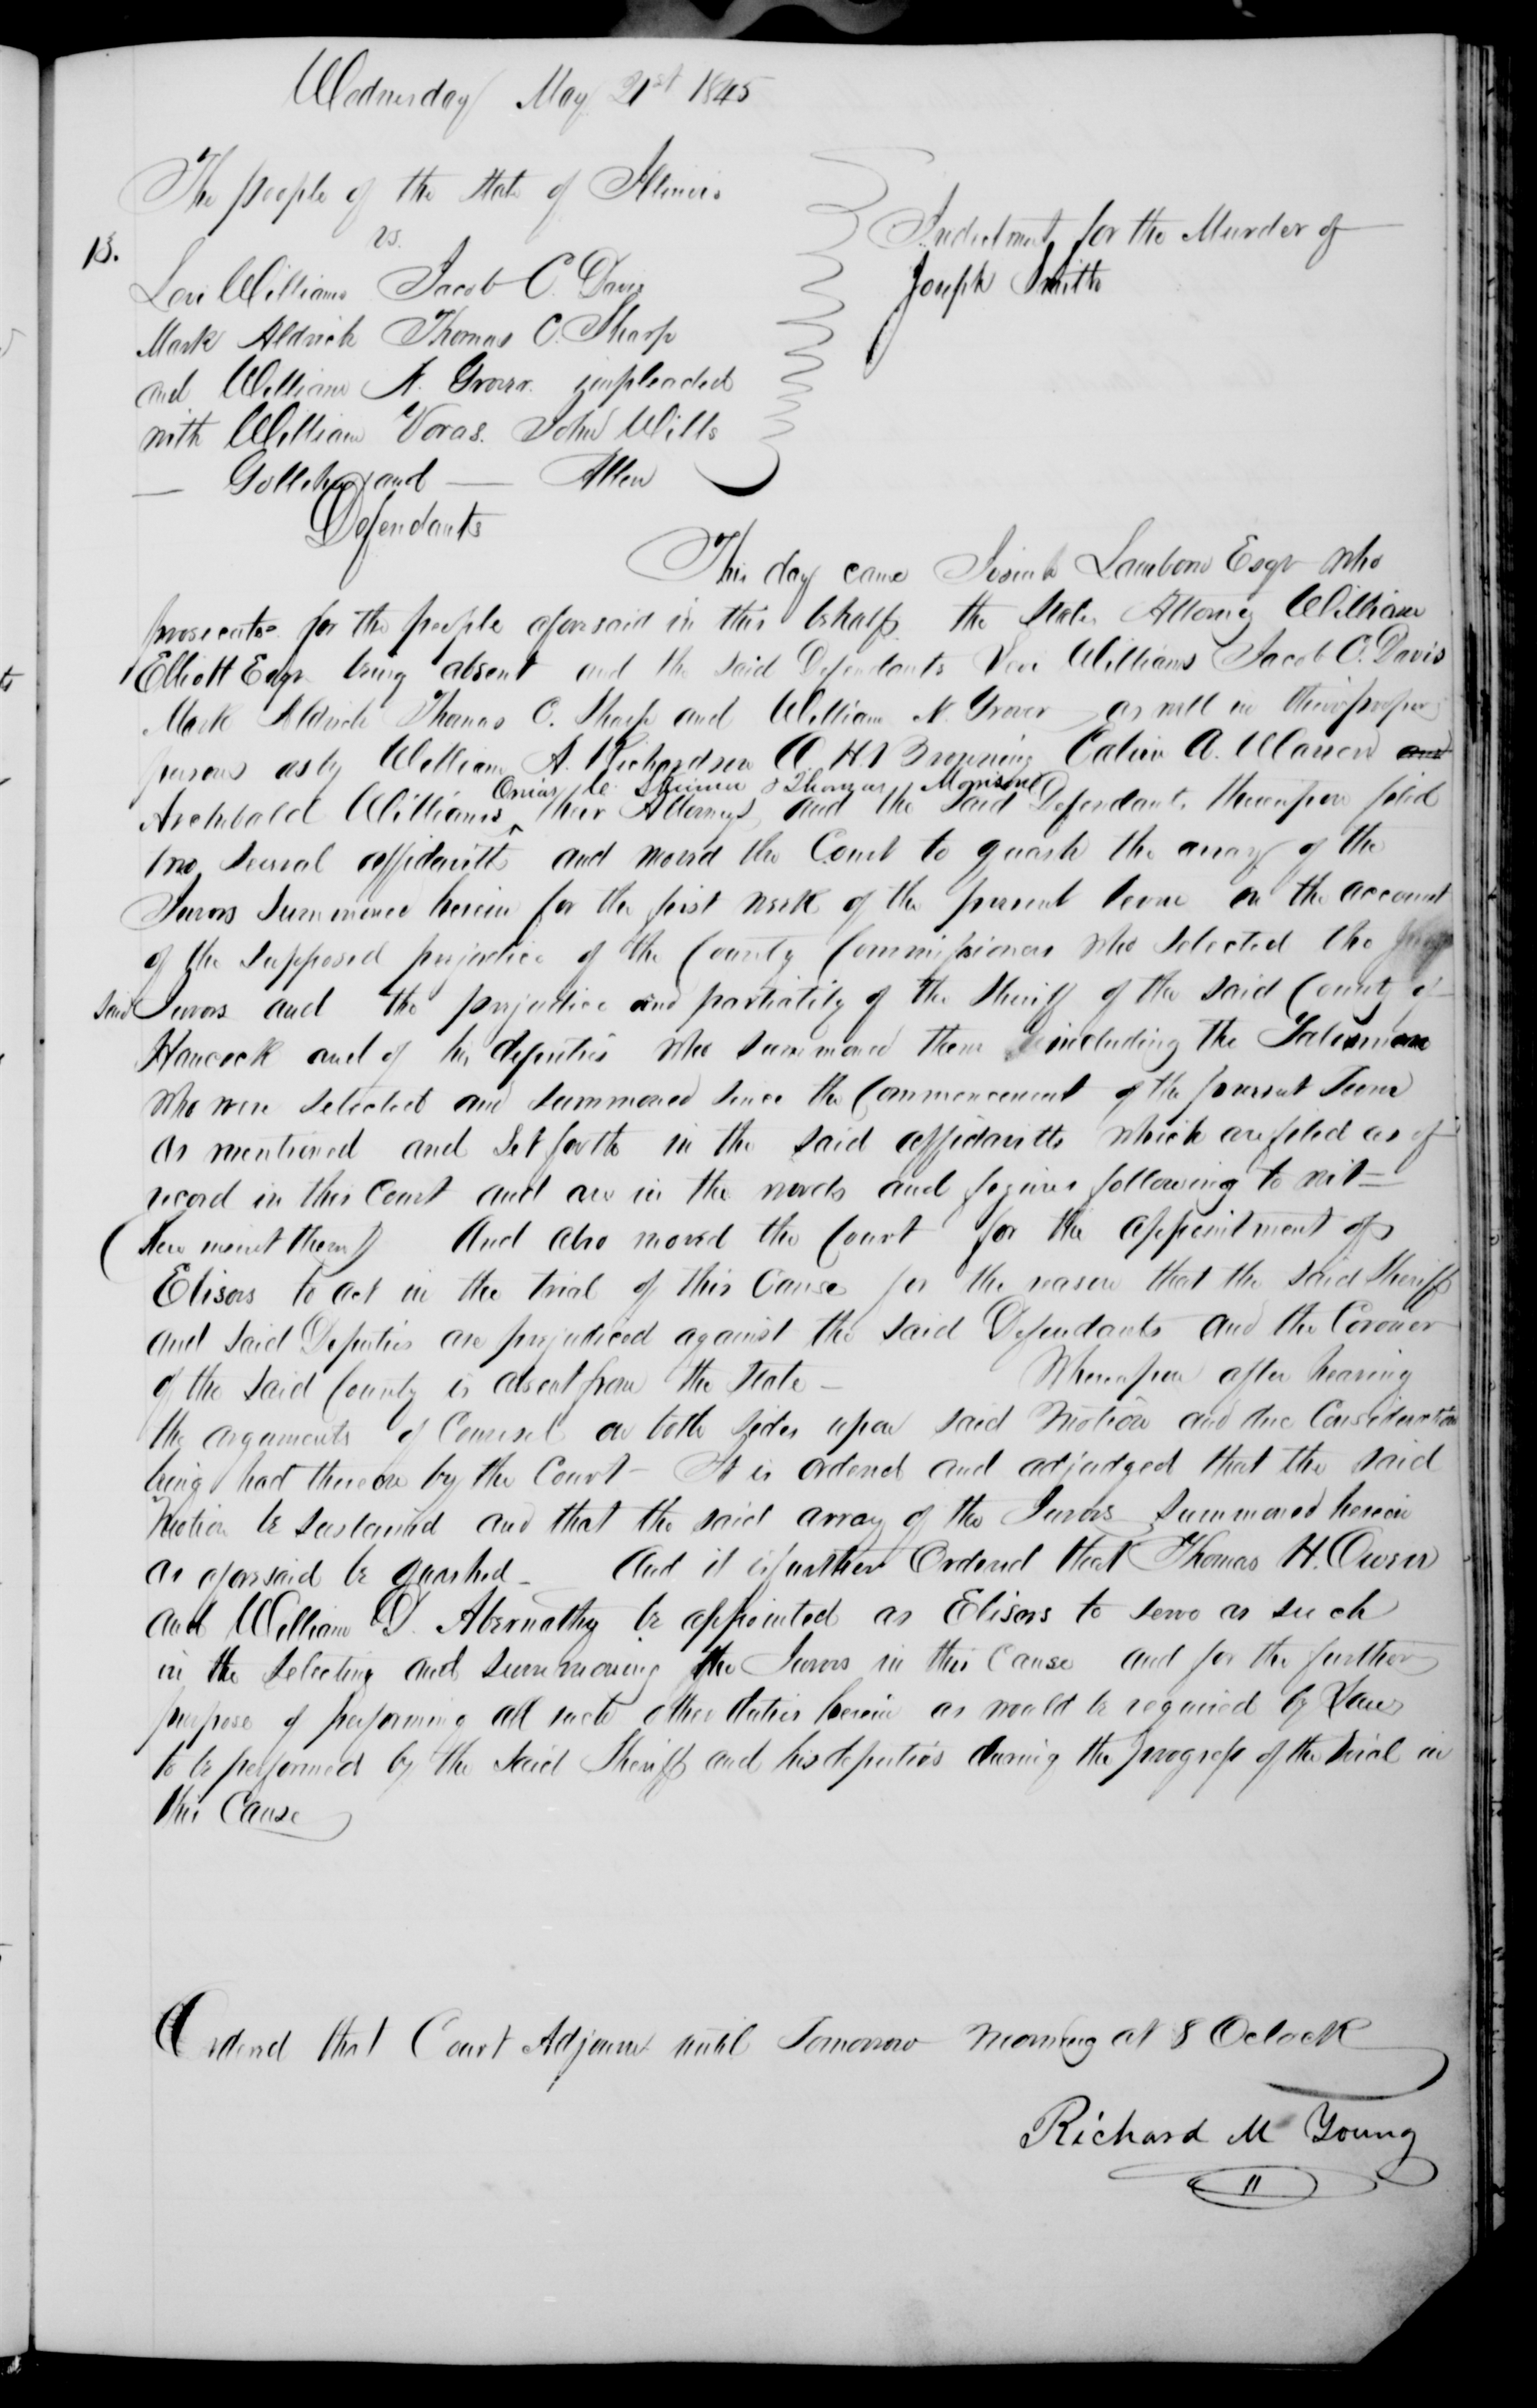 Wednesday May 21st 1845
The people of the State of Illinois
vs.
13.
Levi Williams Jacob C. Davis
Mark Aldrich Thomas C. Sharp
and William N. Grover impleaded
with William Voras. John Wills
— Golleher and — Allen
Defendants
Indictment for the Murder of
Joseph Smith
This day came Josiah Lamborn Esqr who
prosecutes for the people aforesaid in this behalf the States Attorney William
Elliott Esqr being absent and the said Defendants Levi Williams Jacob C. Davis
Mark Aldrich Thomas C. Sharp and William N. Grover as well in their proper
persons as by William A. Richardson O. H. Browning Calvin A. Warren and
Onias C. Skinner & Thomas Morrison
Archibald Williams their Attorneys, and the said Defendants thereupon filed
two several affidavitts and moved the Court to quash the array of the
Jurors Summoned herein for the first week of the present term on the account
of the supposed prejudice of the County Commissioners who selected the
said Jurors and the prejudice and partiality of the Sheriff of the said County of
Hancock and of his deputies who summoned them including the Talismen
who were selected and summoned since the Commencement of the present Term
as mentioned and set forth in the said affidavitts which are filed as of
record in this Court and are in the words and figures following to wit—
(Here insert them) And also moved the Court for the appointment of
Elisors to act in the trial of this Cause for the reason that the said Sheriff
and said Deputies are prejudiced against the said Defendants and the Coroner
of the said County is absent from the State — Whereupon after hearing
the arguments of Counsel on both sides upon said Motion and due Consideration
being had thereon by the Court — It is ordered and adjudged that the said
Motion be sustained and that the said array of the Jurors summoned herein
as aforesaid be quashed — And it is further Ordered that Thomas H. Owen
and William D. Abernathy be appointed as Elisors to serve as such
in the selecting and summoning the Jurors in this Cause and for the further
purpose of performing all such other duties herein as would be required by Law
to be performed by the said Sheriff and his deputies during the progress of the trial in
this Cause
Ordered that Court Adjourn until Tomorrow Morning at 8 Oclock
Richard M Young